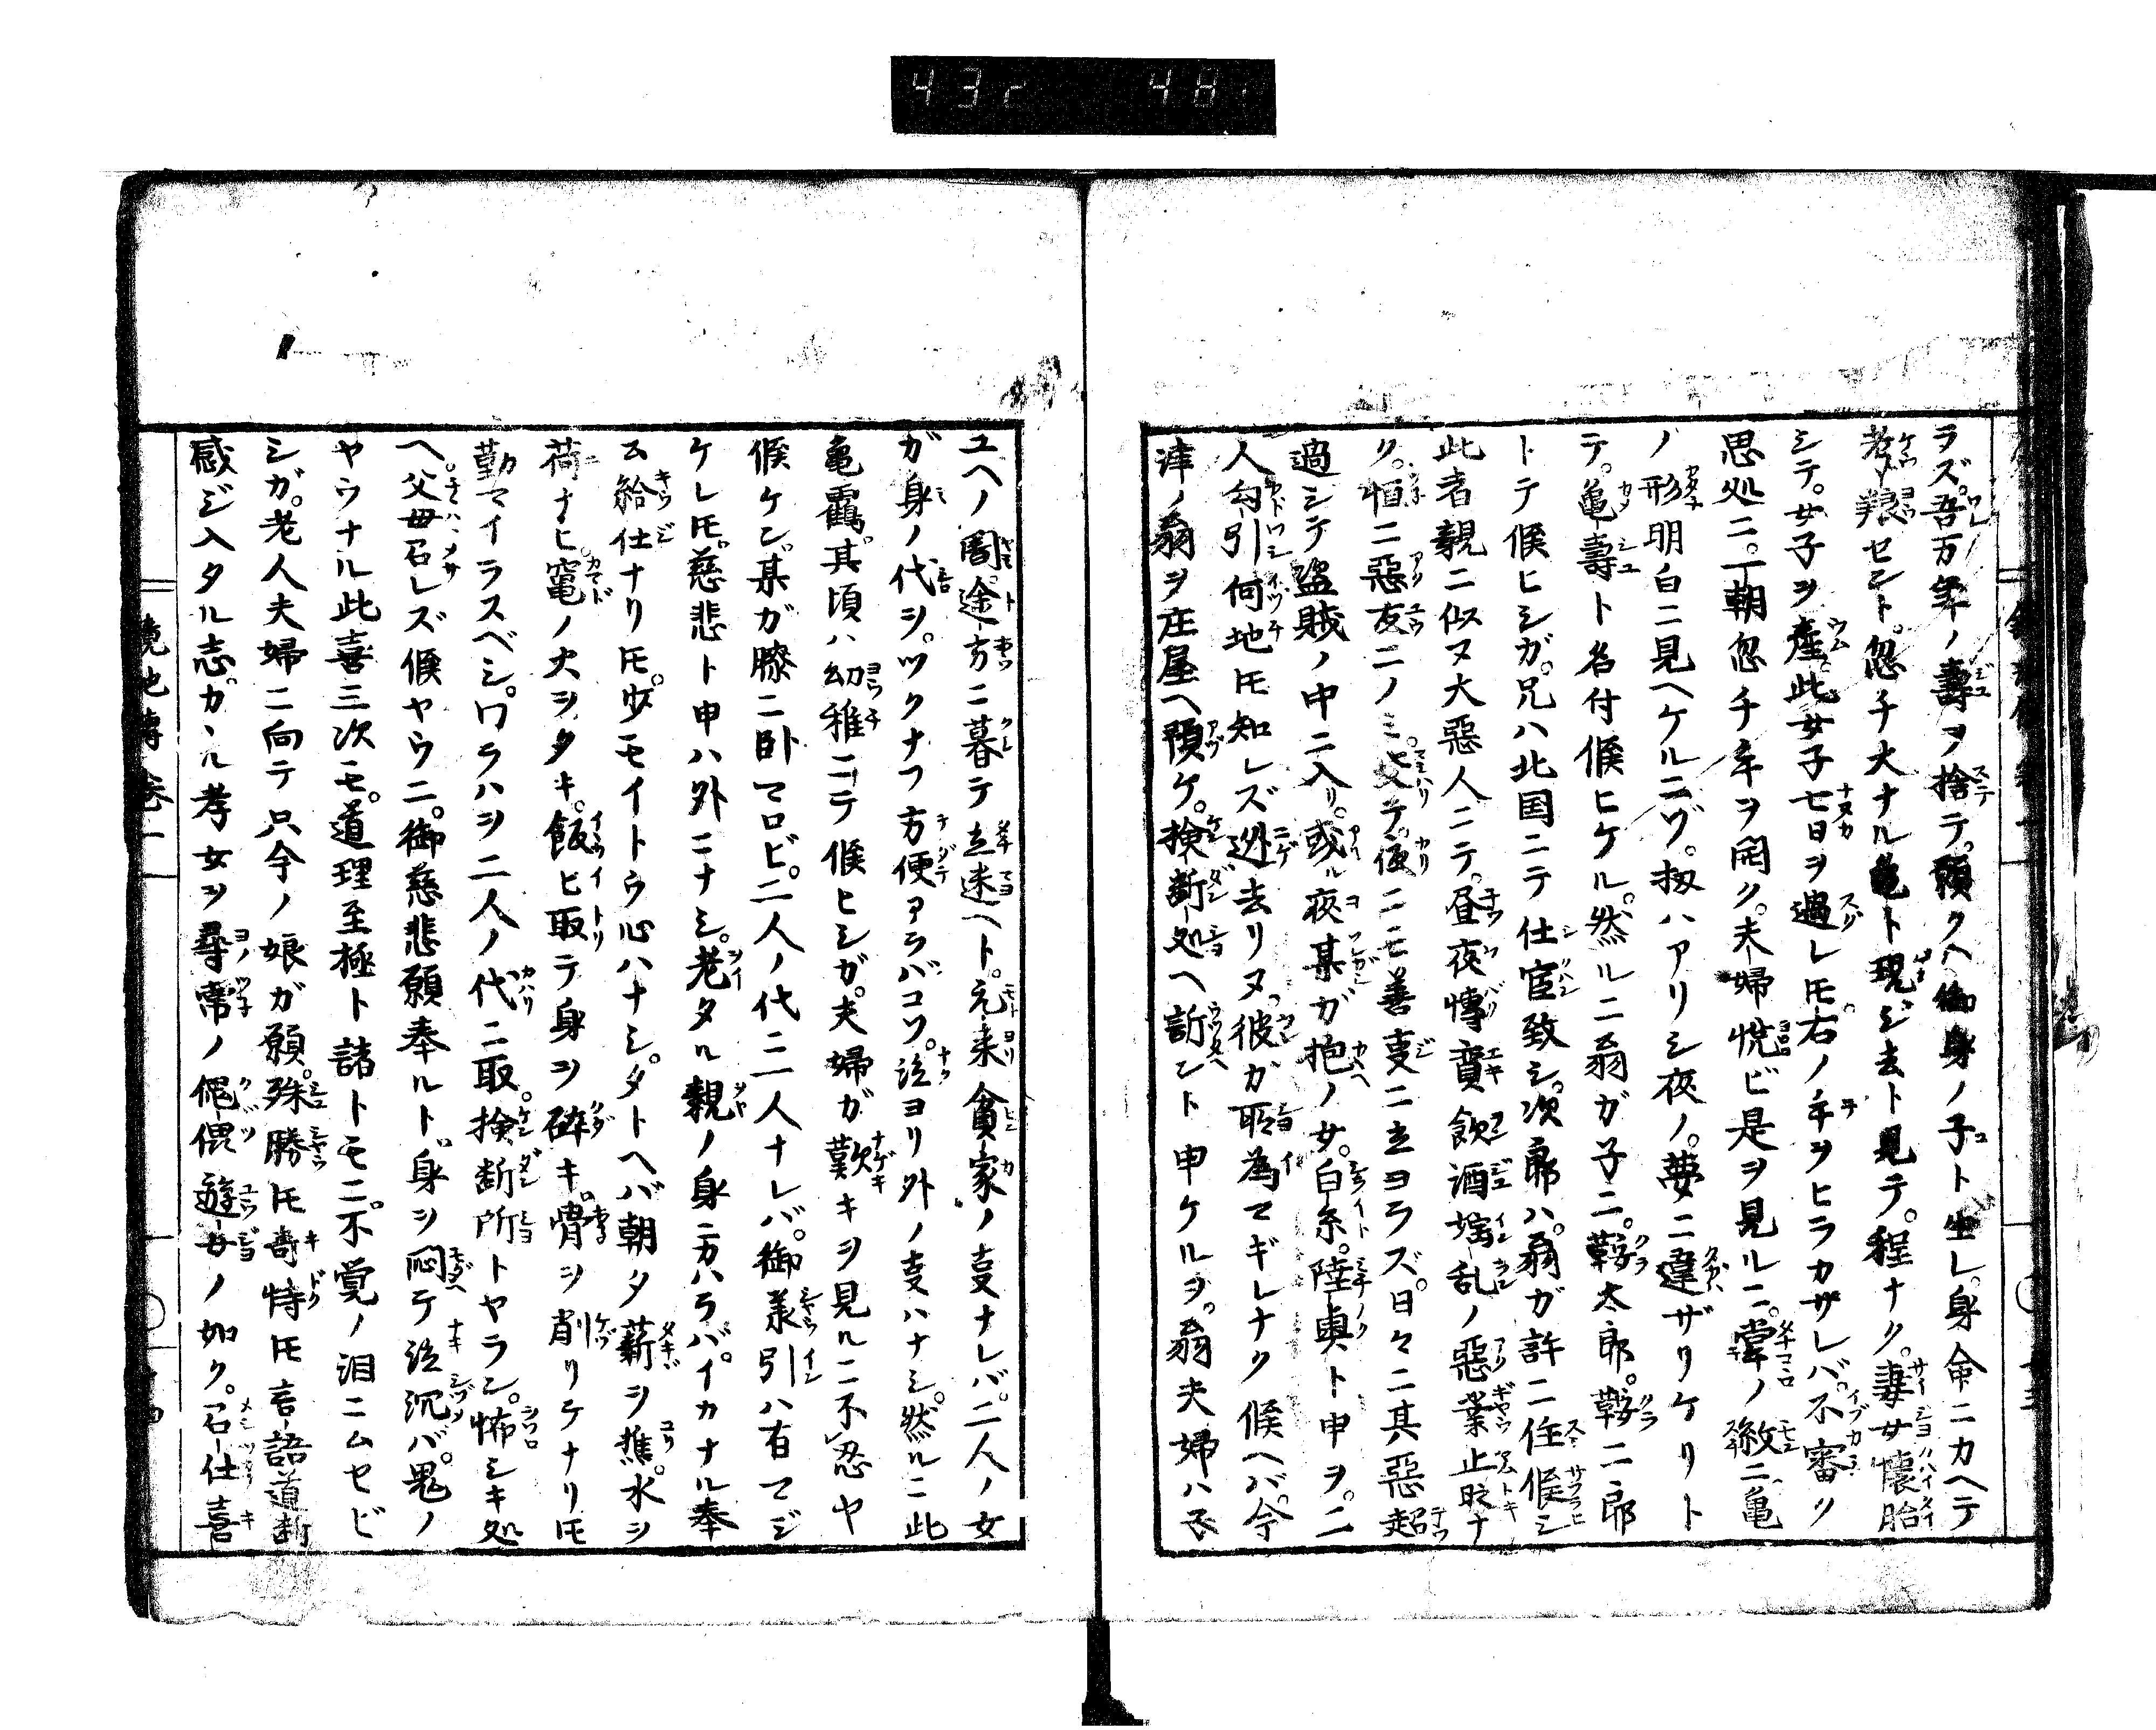 ラズ。吾万年ノ壽ヲ捨テ。願クハ御身ノ子ト生レ。身命ニカヘテ
孝養セント。忽チ大ナル亀ト現ジ去ト見テ。程ナク。妻女懐胎
シテ。女子ヲ産。此女子七日ヲ過レ𪜈。右ノ手ヲヒラカザレバ。不審ク
思処ニ。一朝忽チ手ヲ開ク。夫婦悦ビ是ヲ見ルニ。掌ノ紋ニ亀
ノ形明白ニ見ヘケルニゾ。扨ハアリシ夜ノ。夢ニ違ザリケリト
テ。亀壽ト名付候ヒケル。然ルニ翁ガ子ニ。鞍太郎。鞍二郎
トテ候ヒシガ。兄ハ北国ニテ仕官致シ。次郎ハ。翁ガ許ニ住候シ
此者親ニ似ヌ大惡人ニテ。昼夜慱奕飲酒婬乱ノ惡業止時ナ
ク。恒ニ惡友ニノミ。交テ。仮ニモ善叓ニ立ヨラズ。日々ニ其惡超
過シテ盗賊ノ中ニ入リ。或ル夜某ガ抱ノ女。白糸。陸奥ト申ヲ。二
人勾引何地𪜈知レズ迯去リヌ。彼カ所為マギレナク候ヘバ。今
津ノ翁ヲ庄屋ヘ預ケ。検断処ヘ訴ント申ケルヲ。翁夫婦ハ子
ユヘノ闇。途方ニ暮テ立迷ヘト。元来貧家ノ叓ナレバ。二人ノ女
ガ身ノ代ヲ。ツクナフ方便アラバコソ。泣ヨリ外ノ叓ハナシ。然ルニ此
亀靏。其頃ハ幼稚ニテ候ヒシガ。夫婦ガ歎キヲ見ルニ不忍ヤ
候ケン。某ガ膝ニ卧マロビ。二人ノ代ニ一人ナレバ。御羕引ハ有マジ
ケレ𪜈。慈悲ト申ハ外ニナシ。老タル親ノ身ニカハラバ。イカナル奉
公給仕ナリ𪜈。少モイトウ心ハナシ。タトヘバ朝夕薪ヲ樵。水ヲ
荷ナヒ。竃ノ火ヲタキ。飯ヒ取テ身ヲ碎キ。骨ヲ削リケナリ𪜈
勤マイラスベシ。ワラハヲ二人ノ代ニ取。検断所トヤラン。怖シキ処
ヘ。父母召レズ候ヤウニ。御慈悲願奉ルト。身ヲ悶テ泣沉バ。鬼ノ
ヤウナル此喜三次モ。道理至極ト諸トモニ。不覚ノ泪ニムセビ
シガ。老人夫婦ニ向テ只今ノ娘ガ願。殊勝𪜈竒特𪜈言語道断
感ジ入タル志。カヽル孝女ヲ尋常ノ傀偶遊女ノ如ク。召仕喜